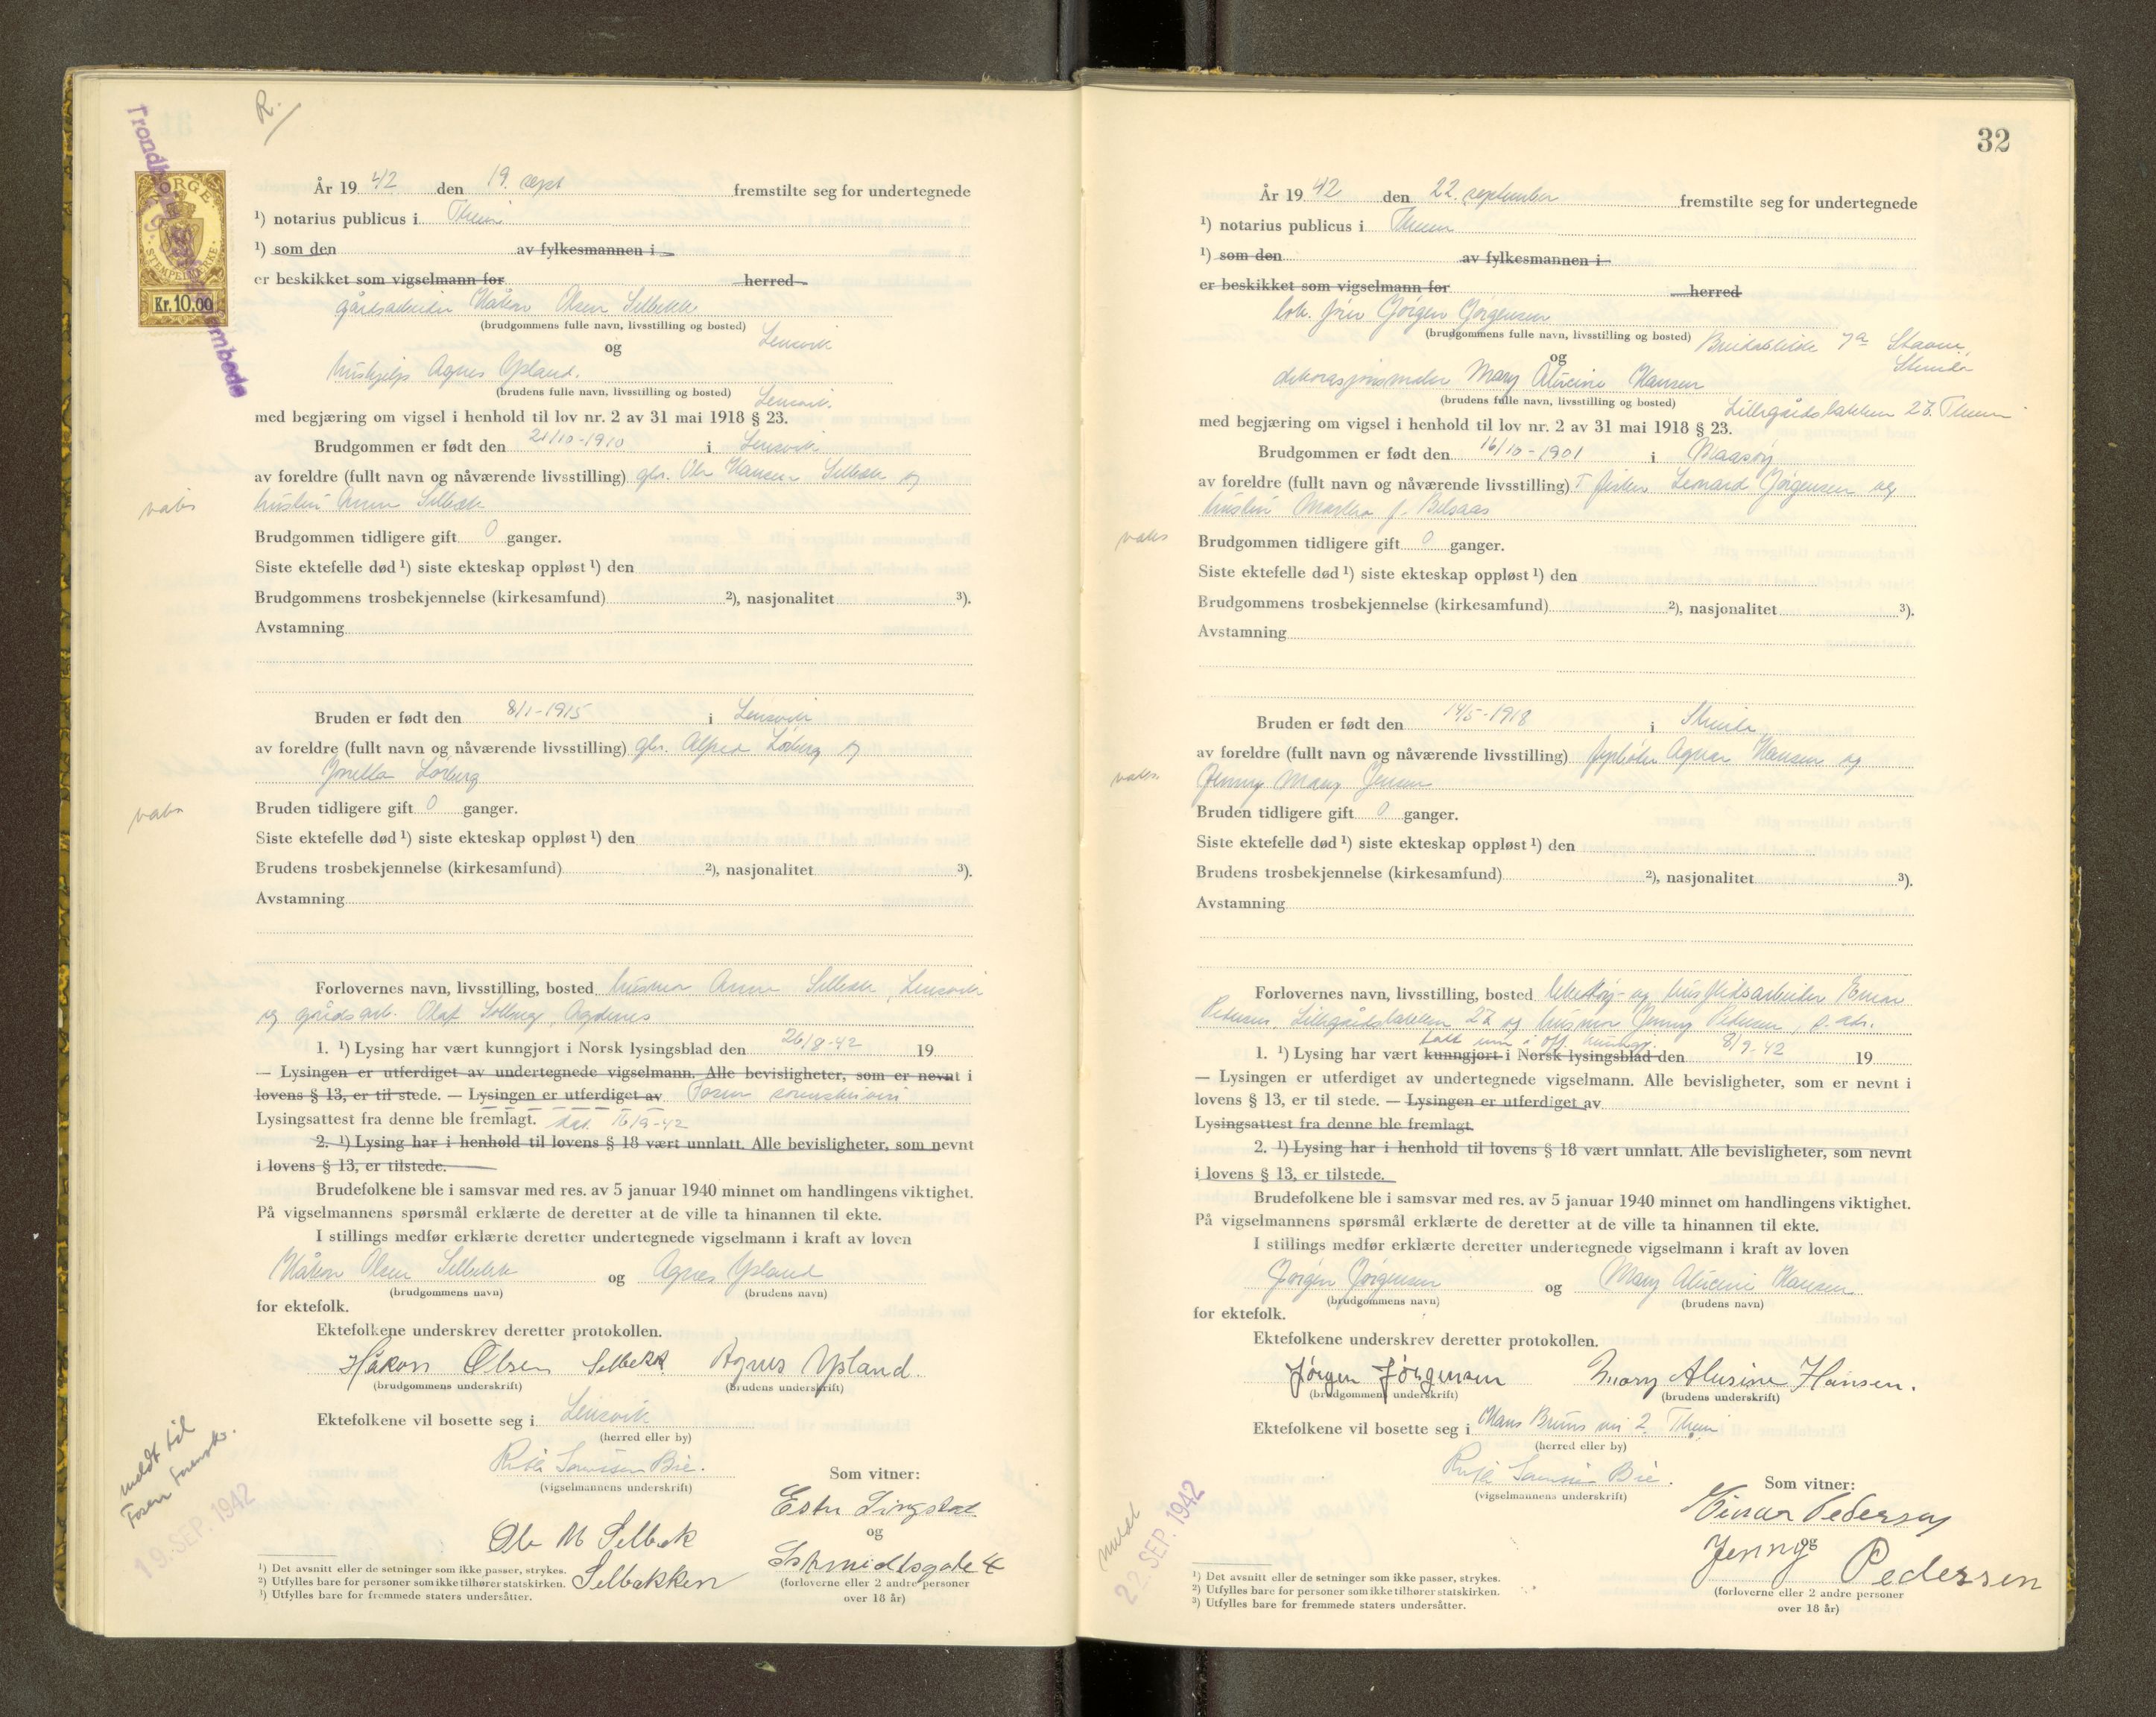 R.
Trondh
embede
NORGE
STEMPELMERKE
Kr. 10.00
År 19 42 den 19. sept fremstilte seg for undertegnede
¹) notarius publicus i Thm
¹) som den av fylkesmannen i
er beskikket som vigselmann for herred
gårdsarbeider Håkon Olsen Selbekk
(brudgommens fulle navn, livsstilling og bosted) Lensvik
og
hushjelp Agnes Ysland.
(brudens fulle navn, livsstilling og bosted) Lensvik.
med begjæring om vigsel i henhold til lov nr. 2 av 31 mai 1918 § 23.
Brudgommen er født den 21/10-1910 i Lensvik
av foreldre (fullt navn og nåværende livsstilling) gbr. Ole Hansen Selbekk og
hustru Anna Selbekk
vabs
Brudgommen tidligere gift 0 ganger.
Siste ektefelle død ¹) siste ekteskap oppløst ¹) den
Brudgommens trosbekjennelse (kirkesamfund) ²), nasjonalitet ³).
Avstamning
Bruden er født den 8/1-1915 i Lensvik
av foreldre (fullt navn og nåværende livsstilling) gbr. Alfred og
vabs
Bruden tidligere gift 0 ganger.
Siste ektefelle død ¹) siste ekteskap oppløst ¹) den
Brudens trosbekjennelse (kirkesamfund) ²), nasjonalitet ³).
Avstamning
Forlovernes navn, livsstilling, bosted husmor Anna Selbekk, Lensvik
og gårdsarb. Olaf Solberg, Agdenes
1. ¹) Lysing har vært kunngjort i Norsk lysingsblad den 26/8-42 19
— Lysingen er utferdiget av undertegnede vigselmann. Alle bevisligheter, som er nevnt i
lovens § 13, er til stede. — Lysingen er utferdiget av Fosen sorenskriveri
Lysingsattest fra denne ble fremlagt. dat. 16/9-42
2. ¹) Lysing har i henhold til lovens § 18 vært unnlatt. Alle bevisligheter, som nevnt
i lovens § 13, er tilstede.
Brudefolkene ble i samsvar med res. av 5 januar 1940 minnet om handlingens viktighet.
På vigselmannens spørsmål erklærte de deretter at de ville ta hinannen til ekte.
I stillings medfør erklærte deretter undertegnede vigselmann i kraft av loven
Håkon Olsen Selbekk og Agnes Ysland
(brudgommens navn) (brudens navn)
for ektefolk.
Ektefolkene underskrev deretter protokollen.
Håkon Olsen Selbekk Agnes Ysland.
(brudgommens underskrift) (brudens underskrift)
Ektefolkene vil bosette seg i Lensvik
(herred eller by)
Ruth Sørensen Bie.
(vigselmannens underskrift)
Som vitner:
Ester
og
Ole M Selbek
Selbekken
Schmidtsgate 4
(forloverne eller 2 andre personer
over 18 år)
meldt til
Fosen sorenskr.
19. SEP. 1942
¹) Det avsnitt eller de setninger som ikke passer, strykes.
²) Utfylles bare for personer som ikke tilhører statskirken.
³) Utfylles bare for fremmede staters undersåtter.
32
År 19 42 den 22. september fremstilte seg for undertegnede
¹) notarius publicus i Thm
¹) som den av fylkesmannen i
er beskikket som vigselmann for herred
Jørgen Jørgensen
(brudgommens fulle navn, livsstilling og bosted) 7a Stavne,
Strinda
og
dekorasjonsmaler Mary Alvine Hansen
(brudens fulle navn, livsstilling og bosted) Lillegårdsbakken 27. Thm
med begjæring om vigsel i henhold til lov nr. 2 av 31 mai 1918 § 23.
Brudgommen er født den 16/10-1901 i Maasøy
av foreldre (fullt navn og nåværende livsstilling) fisker Leonard Jørgensen og
hustru Marta f. Bilsaas
vabs
Brudgommen tidligere gift 0 ganger.
Siste ektefelle død ¹) siste ekteskap oppløst ¹) den
Brudgommens trosbekjennelse (kirkesamfund) ²), nasjonalitet ³).
Avstamning
Bruden er født den 14/5-1918 i Strinda
av foreldre (fullt navn og nåværende livsstilling) fyrbøter Agnar Hansen og
Jenny Mary Jensen
vabs
Bruden tidligere gift 0 ganger.
Siste ektefelle død ¹) siste ekteskap oppløst ¹) den
Brudens trosbekjennelse (kirkesamfund) ²), nasjonalitet ³).
Avstamning
Forlovernes navn, livsstilling, bosted leketøy- og husflidsarbeider Einar
Pedersen Lillegårdsbakken 27 og husmor Jenny Pedersen, s. adr.
1. ¹) Lysing har vært kunngjort i Norsk lysingsblad den 8/9-42 19
— Lysingen er utferdiget av undertegnede vigselmann. Alle bevisligheter, som er nevnt i
lovens § 13, er til stede. — Lysingen er utferdiget av
Lysingsattest fra denne ble fremlagt.
2. ¹) Lysing har i henhold til lovens § 18 vært unnlatt. Alle bevisligheter, som nevnt
i lovens § 13, er tilstede.
Brudefolkene ble i samsvar med res. av 5 januar 1940 minnet om handlingens viktighet.
På vigselmannens spørsmål erklærte de deretter at de ville ta hinannen til ekte.
I stillings medfør erklærte deretter undertegnede vigselmann i kraft av loven
Jørgen Jørgensen og Mary Alvine Hansen
(brudgommens navn) (brudens navn)
for ektefolk.
Ektefolkene underskrev deretter protokollen.
Jørgen Jørgensen Mary Alusine Hansen.
(brudgommens underskrift) (brudens underskrift)
Ektefolkene vil bosette seg i Hans Bruns vei 2. Thm
(herred eller by)
Ruth Sørensen Bie.
(vigselmannens underskrift)
Som vitner:
Einar Pedersen
og
Jenny Pedersen
(forloverne eller 2 andre personer
over 18 år)
meldt
22. SEP. 1942
¹) Det avsnitt eller de setninger som ikke passer, strykes.
²) Utfylles bare for personer som ikke tilhører statskirken.
³) Utfylles bare for fremmede staters undersåtter.